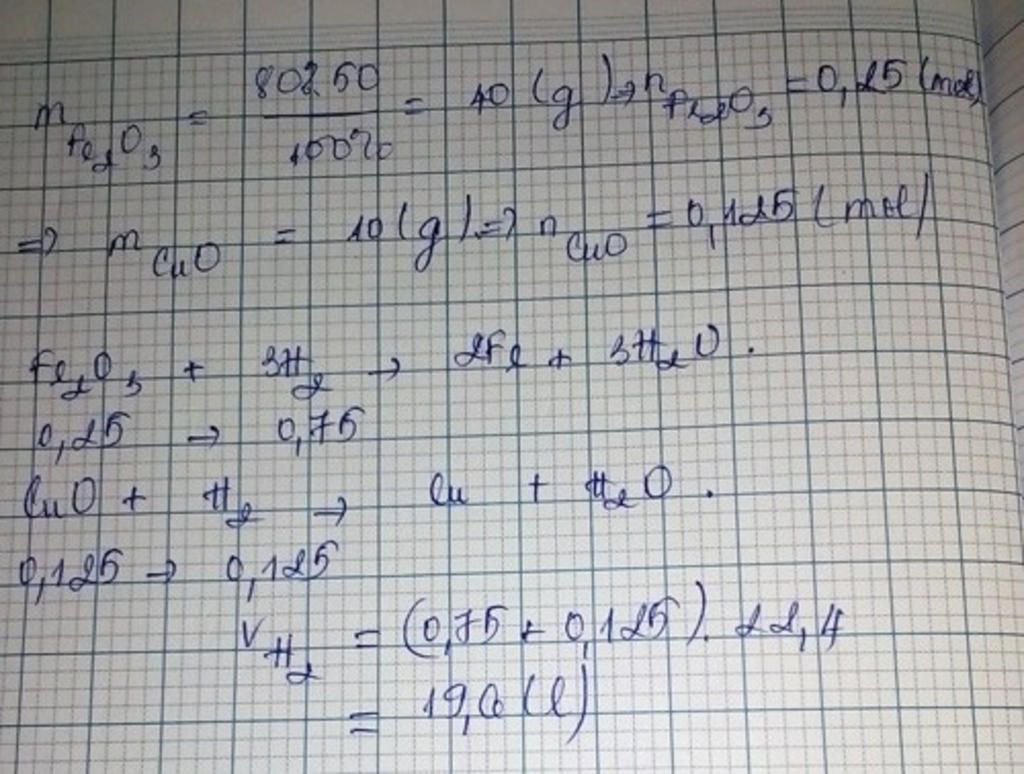 m Fe₂O₃ = 80%.50 / 100% = 40 (g) => n Fe₂O₃ = 0,25 (mol)
=> m CuO = 10 (g) => n CuO = 0,125 (mol)
Fe₂O₃ + 3H₂ → 2Fe + 3H₂O.
0,25 → 0,75
CuO + H₂ → Cu + H₂O.
0,125 → 0,125
V H₂ = (0,75 + 0,125). 22,4
= 19,6 (l)